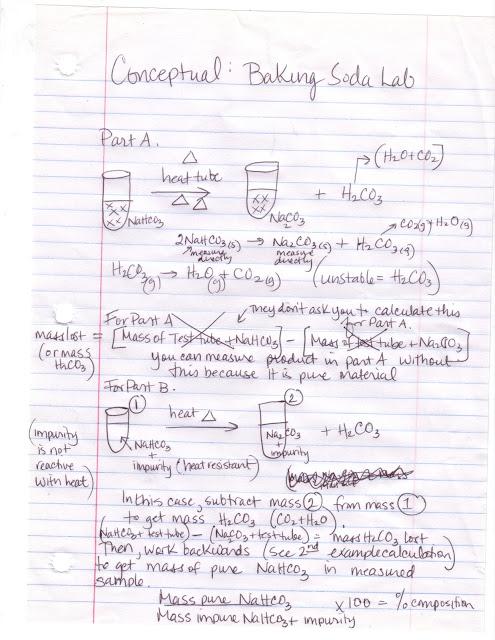 Conceptual: Baking Soda Lab
Part A.
△
heat tube
△ △
NaHCO₃
Na₂CO₃
+ H₂CO₃
(H₂O + CO₂)
CO₂(g) + H₂O(g)
2NaHCO₃(s) → Na₂CO₃(s) + H₂CO₃(g)
measure directly
measure directly
H₂CO₃(g) → H₂O(g) + CO₂(g) (unstable = H₂CO₃)
They don't ask you to calculate this
for Part A.
For Part A
mass lost (or mass H₂CO₃) = [Mass of Test tube + NaHCO₃] - [Mass of test tube + Na₂CO₃]
you can measure product in part A without
this because it is pure material
For Part B.
①
heat △
②
NaHCO₃
+
impurity (heat resistant)
Na₂CO₃
+
impurity
+ H₂CO₃
(impurity
is not
reactive
with heat)
In this case, subtract mass ② from mass ①
to get mass H₂CO₃ (CO₂+H₂O)
(NaHCO₃ + test tube) - (Na₂CO₃ + test tube) = mass H₂CO₃ lost
Then, work backwards (see 2nd example calculation)
to get mass of pure NaHCO₃ in measured
sample.
Mass pure NaHCO₃
Mass impure NaHCO₃ + impurity
x 100 = % composition